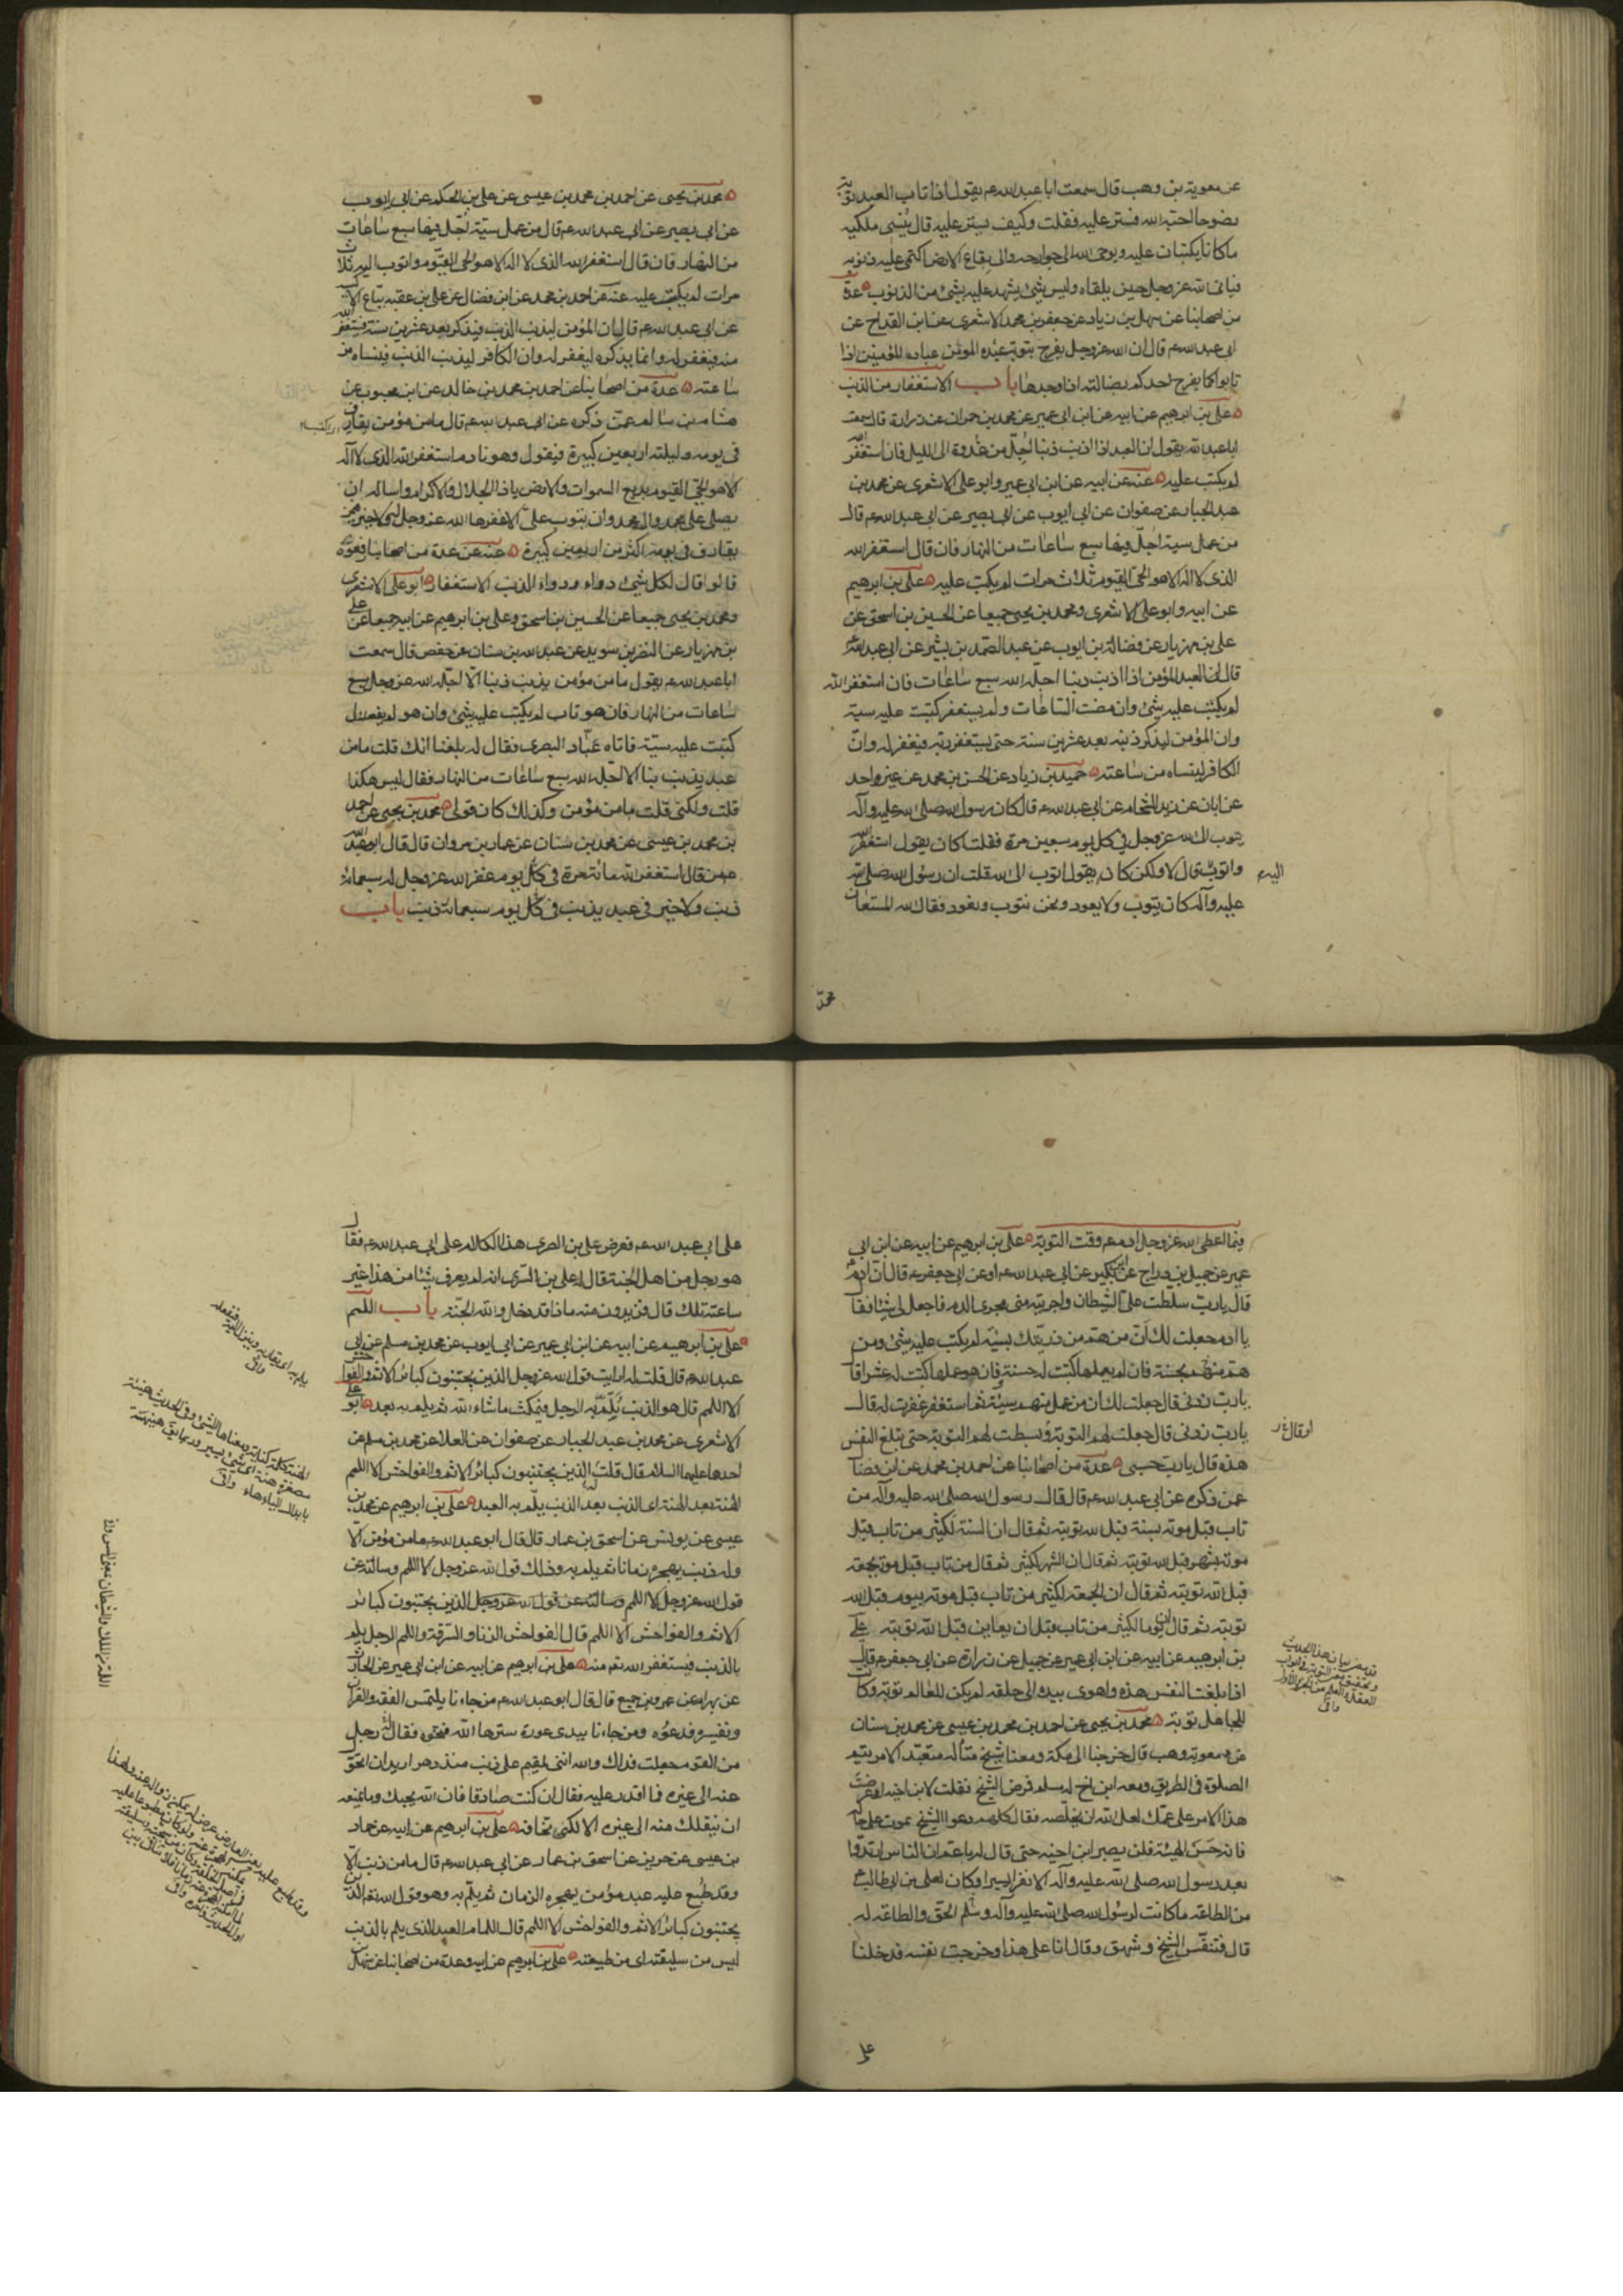 عن معوية بن وهب قال سمعت ابا عبد الله ع يقول اذا تاب العبد توبة
نصوحا احبه الله فستر عليه فقلت وكيف يستر عليه قال ينسى ملكيه
ما كانا يكتبان عليه ويوحى الله الى جوارحه والى بقاع الارض اكتمى عليه ذنوبه
فيلقى الله عز وجل حين يلقاه وليس شئ يشهد عليه بشئ من الذنوب عدة
من اصحابنا عن سهل بن زياد عن جعفر بن محمد الاشعرى عن ابن القداح عن
ابى عبد الله ع قال ان الله عز وجل يفرح بتوبة عبده المؤمن عباده المؤمنين اذا
تابوا كما يفرح احدكم بضالته اذا وجدها باب الاستغفار من الذنب
على بن ابرهيم عن ابيه عن ابن ابى عمير عن محمد بن حمران عن زرارة قال سمعت
ابا عبد الله يقول ان العبد اذا اذنب ذنبا اجل من غدوة الى الليل فان استغفر الله
لم يكتب عليه عنه عن ابيه عن ابن ابى عمير وابو على الاشعرى عن محمد بن
عبد الجبار عن صفوان عن ابى ايوب عن ابى بصير عن ابى عبد الله ع قال
من عمل سيئة اجل فيها سبع ساعات من النهار فان قال استغفر الله
الذى لا اله الا هو الحى القيوم ثلاث مرات لم يكتب عليه على بن ابرهيم
عن ابيه وابو على الاشعرى ومحمد بن يحيى جميعا عن الحسين بن اسحق عن
على بن مهزيار عن فضالة بن ايوب عن عبد الصمد بن بشير عن ابى عبد الله
قال ان العبد المؤمن اذا اذنب ذنبا اجله الله سبع ساعات فان استغفر الله
لم يكتب عليه شئ وان مضت الساعات ولم يستغفر كتبت عليه سيئة
وان المؤمن ليذكر ذنبه بعد عشرين سنة حتى يستغفر ربه فيغفر له وان
الكافر لينساه من ساعته حميد بن زياد عن الحسن بن محمد عن غير واحد
عن ابان عن زيد الشحام عن ابى عبد الله ع قال كان رسول الله صلى الله عليه وآله
يتوب الى الله عز وجل فى كل يوم سبعين مرة فقلت اكان يقول استغفر الله
واتوب قال لا ولكن كان يقول اتوب الى الله قلت ان رسول الله صلى الله
اليه
عليه وآله كان يتوب ولا يعود ونحن نتوب ونعود فقال الله المستعان
محمد
محمد بن يحيى عن احمد بن محمد بن عيسى عن على بن الحكم عن ابى ايوب
عن ابى بصير عن ابى عبد الله ع قال من عمل سيئة اجل فيها سبع ساعات
من النهار فان قال استغفر الله الذى لا اله الا هو الحى القيوم واتوب اليه ثلاث
مرات لم يكتب عليه عنه عن احمد بن محمد عن ابن فضال عن على بن عقبة بياع الاكسية
عن ابى عبد الله ع قال ان المؤمن ليذنب الذنب فيذكر بعد عشرين سنة فيستغفر الله
منه فيغفر له وانما يذكره ليغفر له وان الكافر ليذنب الذنب فينساه من
ساعته عدة من اصحابنا عن احمد بن محمد بن خالد عن ابن محبوب عن
هشام بن سالم عمن ذكره عن ابى عبد الله ع قال ما من مؤمن يقارف
فى يومه وليلته اربعين كبيرة فيقول وهو نادم استغفر الله الذى لا اله
الا هو الحى القيوم بديع السموات والارض ياذا الجلال والاكرام واساله ان
يصلى على محمد وال محمد وان يتوب على الا غفرها الله عز وجل له ولا خير فيمن
يقارف فى يومه اكثر من اربعين كبيرة عنه عن عدة من اصحابنا رفعوه
قالوا قال لكل شئ دواء ودواء الذنب الاستغفار ابو على الاشعرى
ومحمد بن يحيى جميعا عن الحسين بن اسحق وعلى بن ابرهيم عن ابيه جميعا عن على
بن مهزيار عن النضر بن سويد عن عبد الله بن سنان عن حفص قال سمعت
ابا عبد الله ع يقول ما من مؤمن يذنب ذنبا الا اجله الله عز وجل سبع
ساعات من النهار فان هو تاب لم يكتب عليه شئ وان هو لم يفعل
كتبت عليه سيئة فاتاه عباد البصرى فقال له بلغنا انك قلت ما من
عبد يذنب ذنبا الا اجله الله سبع ساعات من النهار فقال ليس هكذا
قلت ولكنى قلت ما من مؤمن وكذلك كان قولى محمد بن يحيى عن احمد
بن محمد بن عيسى عن محمد بن سنان عن عمار بن مروان قال قال ابو عبد الله
ع من قال استغفر الله مائة مرة فى كل يوم غفر الله عز وجل له سبعمائة
ذنب ولا خير فى عبد يذنب فى كل يوم سبعمائة ذنب باب
فيما اعطى الله عز وجل ادم ع وقت التوبة على بن ابرهيم عن ابيه عن ابن ابى
عمير عن جميل بن دراج عن ابن بكير عن ابى عبد الله ع او عن ابى جعفر ع قال ان ادم ع
قال يا رب سلطت على الشيطان واجريته منى مجرى الدم فاجعل لى شيئا فقال
يا ادم جعلت لك ان من هم من ذريتك بسيئة لم يكتب عليه شئ ومن
هم منهم بحسنة فان لم يعملها كتبت له حسنة وان هو عملها كتبت له عشرا قال
يا رب زدنى قال جعلت لك ان من عمل منهم سيئة ثم استغفر غفرت له قال
يا رب زدنى قال جعلت لهم التوبة وبسطت لهم التوبة حتى تبلغ النفس
او قال
هذه قال يا رب حسبى عدة من اصحابنا عن احمد بن محمد عن ابن فضال
عمن ذكره عن ابى عبد الله ع قال قال رسول الله صلى الله عليه وآله من
تاب قبل موته بسنة قبل الله توبته ثم قال ان السنة لكثير من تاب قبل
موته بشهر قبل الله توبته ثم قال ان الشهر لكثير ثم قال من تاب قبل موته بجمعة
قبل الله توبته ثم قال ان الجمعة لكثير من تاب قبل موته بيوم قبل الله
توبته ثم قال ان يوما لكثير من تاب قبل ان يعاين قبل الله توبته على
بن ابرهيم عن ابيه عن ابن ابى عمير عن جميل عن زرارة عن ابى جعفر ع قال
اذا بلغت النفس هذه واهوى بيده الى حلقه لم يكن للعالم توبة وكانت
للجاهل توبة محمد بن يحيى عن احمد بن محمد بن عيسى عن محمد بن سنان
عن معوية وهب قال خرجنا الى مكة ومعنا شيخ متأله متعبد لا يعرف هذا الامر يتم
الصلوة فى الطريق ومعه ابن اخ له مسلم فمرض الشيخ فقلت لابن اخيه لو عرضت
هذا الامر على عمك لعل الله ان يخلصه فقال كلهم دعوا الشيخ يموت على حاله
فانه حسن الهيئة فلم يصبر ابن اخيه حتى قال له يا عم ان الناس ارتدوا
بعد رسول الله صلى الله عليه وآله الا نفرا يسيرا وكان لعلى بن ابى طالب ع
من الطاعة ما كانت لرسول الله صلى الله عليه وآله وسلم الحق والطاعة له
قال فتنفس الشيخ وشهق وقال انا على هذا وخرجت نفسه فدخلنا
على
على ابى عبد الله ع فعرض على بن السرى هذا الكلام على ابى عبد الله ع فقال
هو رجل من اهل الجنة قال له على بن السرى انه لم يعرف شيئا من هذا غير
ساعته تلك قال فتريدون منه ماذا قد دخل والله الجنة باب اللمم
على بن ابرهيم عن ابيه عن ابن ابى عمير عن ابى ايوب عن محمد بن مسلم عن ابى
عبد الله ع قال قلت له ارايت قول الله عز وجل الذين يجتنبون كبائر الاثم والفواحش
الا اللمم قال هو الذنب يلم به الرجل فيمكث ما شاء الله ثم يلم به بعد ابو على
الاشعرى عن محمد بن عبد الجبار عن صفوان عن العلاء عن محمد بن مسلم عن
احدهما عليهما السلام قال قلت له الذين يجتنبون كبائر الاثم والفواحش الا اللمم
الهنة بعد الهنة اى الذنب بعد الذنب يلم به العبد على بن ابرهيم عن محمد بن
عيسى عن يونس عن اسحق بن عمار قال قال ابو عبد الله ع ما من مؤمن الا
وله ذنب يهجره زمانا ثم يلم به وذلك قول الله عز وجل الا اللمم وسالته عن
قول الله عز وجل الا اللمم وسالته عن قول الله عز وجل الذين يجتنبون كبائر
الاثم والفواحش الا اللمم قال الفواحش الزنا والسرقة واللمم الرجل يلم
بالذنب فيستغفر الله ثم منه على بن ابرهيم عن ابيه عن ابن ابى عمير عن الحارث
عن بهرام عن عمرو بن جميع قال قال ابو عبد الله ع من جاءنا يلتمس الفقه والقرآن
وتفسيره فدعوه ومن جاءنا يبدى عورة سترها الله فنحوه فقال له رجل
من القوم جعلت فداك والله اننى لمقيم على ذنب منذ دهر اريد ان اتحول
عنه الى غيره فما اقدر عليه فقال ان كنت صادقا فان الله يحبك وما يمنعه
ان ينقلك منه الى غيره الا لكى تخافه على بن ابرهيم عن ابيه عن حماد
بن عيسى عن حريز عن اسحق بن عمار عن ابى عبد الله ع قال ما من ذنب الا
وقد طبع عليه عبد مؤمن يهجره الزمان ثم يلم به وهو قول الله تعم الذين
يجتنبون كبائر الاثم والفواحش الا اللمم قال اللمام العبد الذى يلم بالذنب
ليس من سليقته اى من طبيعته على بن ابرهيم عن ابيه وعدة من اصحابنا عن سهل